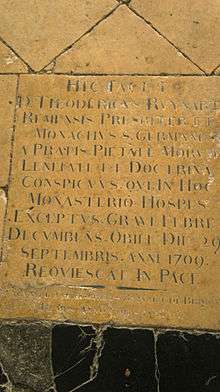 HIC IACET
D. THEODERICUS RUYNART
REMENSIS PRESBYTER ET
MONACHUS S. GERMANI
A PRATIS PIETATE MORUM
LENITATE ET DOCTRINA
CONSPICUUS, QUI IN HOC
MONASTERIO HOSPES
EXCEPTUS, GRAVI FEBRE
DECUMBENS, OBIIT DIE 29
SEPTEMBRIS, ANNI 1709.
REQUIESCAT IN PACE